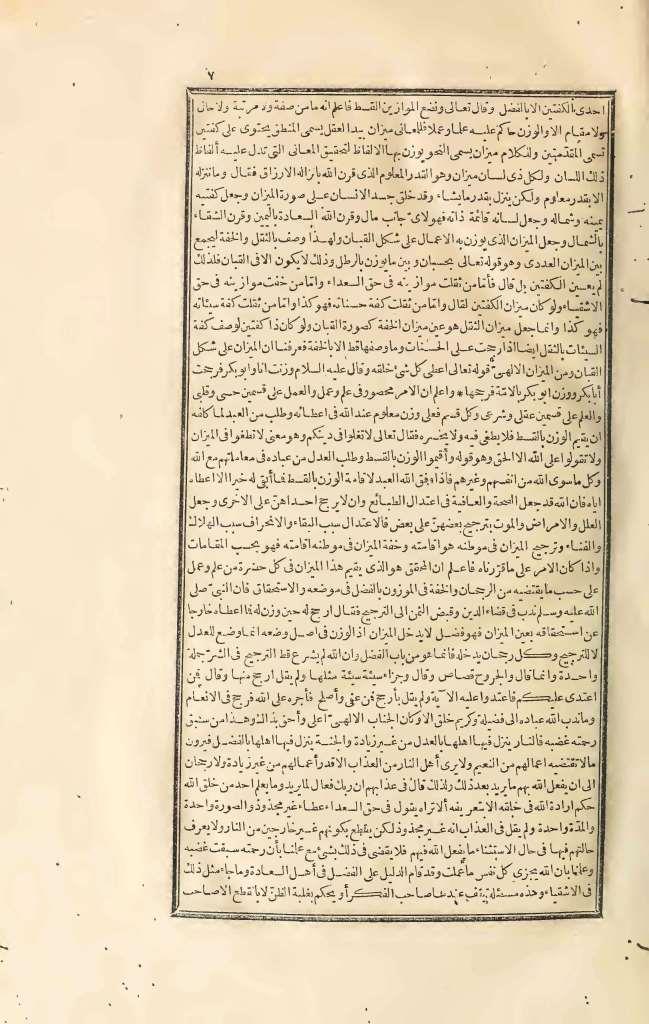 ٧
احدى الكفتين الا بالفضل وقال تعالى ونضع الموازين القسط فاعلم انه ما من صفة ولا مرتبة ولا حال
ولا مقام الا والوزن حاكم عليه علما وعملا فللمعانى ميزان بيد العقل يسمى المنطق يحتوى على كفتين
تسمى المقدّمتين وللكلام ميزان يسمى النحو يوزن بها الالفاظ لتحقيق المعانى التى تدل عليه ألفاظ
ذلك اللسان ولكل ذى لسان ميزان وهو القدر المعلوم الذى قرن الله بانزاله الارزاق فقال وما ننزله
الا بقدر معلوم ولكن ينزل بقدر ما يشاء وقد خلق جسد الانسان على صورة الميزان وجعل كفتيه
يمينه وشماله وجعل لسانه قائمة ذاته فهو لاى جانب مال وقرن الله السعادة باليمين وقرن الشقاء
بالشمال وجعل الميزان الذى يوزن به الاعمال على شكل القبان ولهذا وصف بالثقل والخفة ليجمع
بين الميزان العددى وهو قوله تعالى بحسبان وبين ما يوزن بالرطل وذلك لا يكون الا فى القبان فلذلك
لم يعين الكفتين بل قال فأمّا من ثقلت موازينه فى حق السعداء وامّا من خفت موازينه فى حق
الاشقياء ولو كان ميزان الكفتين لقال وامّا من ثقلت كفة حسناته فهو كذا وامّا من ثقلت كفة سيئاته
فهو كذا وانما جعل ميزان الثقل هو عين ميزان الخفة كصورة القبان ولو كان ذا كفتين لوصف كفة
السيئات بالثقل ايضا اذا رجحت على الحسنات وما وصفها قط الا بالخفة فعرفنا ان الميزان على شكل
القبان ومن الميزان الالهىّ قوله تعالى اعطى كل شئ خلقه وقال عليه السلام وزنت انا وابو بكر فرجحت
أبا بكر ووزن ابو بكر بالامّة فرجحها * واعلم ان الامر محصور فى علم وعمل والعمل على قسمين حسى وقلبى
والعلم على قسمين عقلى وشرعى وكل قسم فعلى وزن معلوم عند الله فى اعطائه وطلب من العبد لما كلفه
ان يقيم الوزن بالقسط فلا يطغى فيه ولا يخسره فقال تعالى لا تغلوا فى دينكم وهو معنى لا تطغوا فى الميزان
ولا تقولوا على الله الا الحق وهو قوله وأقيموا الوزن بالقسط وطلب العدل من عباده فى معاملاتهم مع الله
وكل ما سوى الله من انفسهم وغيرهم فاذا وفق الله العبد لاقامة الوزن بالقسط فما أبقى له خيرا الا اعطاه
اياه فان الله قد جعل الصحة والعافية فى اعتدال الطبائع وان لا يرجح احداهنّ على الاخرى وجعل
العلل والامراض والموت بترجيح بعضهنّ على بعض فالاعتدال سبب البقاء والانحراف سبب الهلاك
والفناء وترجيح الميزان فى موطنه هو اقامته وخفة الميزان فى موطنه اقامته فهو بحسب المقامات
واذا كان الامر على ما قرّرناه فاعلم ان المحقق هو الذى يقيم هذا الميزان فى كل حضرة من علم وعمل
على حسب ما يقتضيه من الرجحان والخفة فى الموزون بالفضل فى موضعه والاستحقاق فان النبىّ صلى
الله عليه وسلم ندب فى قضاء الدين وقبض الثمن الى الترجيح فقال ارجح له حين وزن له فما اعطاه خارجا
عن استحقاقه بعين الميزان فهو فضل لا يدخل الميزان اذ الوزن فى اصل وضعه انما وضع للعدل
لا للترجيح وكل رجحان يدخله فانما هو من باب الفضل وان الله لم يشرع قط الترجيح فى الشرّ جملة
واحدة وانما قال والجروح قصاص وقال وجزاء سيئة سيئة مثلها ولم يقل ارجح منها وقال فمن
اعتدى عليكم فاعتدوا عليه الآية ولم يقل بأرجح فمن عفى وأصلح فأجره على الله فرجح فى الانعام
وما ندب الله عباده الى فضيلة وكريم خلق الا وكان الجناب الالهىّ اعلى وأحق بذلك وهذا من سبق
رحمته غضبه فالنار ينزل فيها اهلها بالعدل من غير زيادة والجنة ينزل فيها اهلها بالفضل فيرون
ما لا تقتضيه اعمالهم من النعيم ولا يرى أهل النار من العذاب الا قدر أعمالهم من غير زيادة ولا رجحان
الى ان يفعل الله بهم ما يريد بعد ذلك ولذلك قال فى عذابهم ان ربك فعال لما يريد وما يعلم احد من خلق الله
حكم ارادة الله فى خلقه الا بتعريفه ألا تراه يقول فى حق السعداء عطاء غير مجذوذ والصورة واحدة
والمدّة واحدة ولم يقل فى العذاب انه غير مجذوذ لكن يقطع بكونهم غير خارجين من النار ولا يعرف
حالتهم فيها فى حال الاستثناء ما يفعل الله فيهم فلا يقضى فى ذلك بشئ مع علمنا بأن رحمته سبقت غضبه
وعلمنا بان الله يجزى كل نفس ما عملت وقد قام الدليل على الفضل فى أهل السعادة وما جاء مثل ذلك
فى الاشقياء وهذه مسئلة يقف عندها صاحب الفكر أو يحكم بغلبة الظنّ لا بالقطع الا صاحب